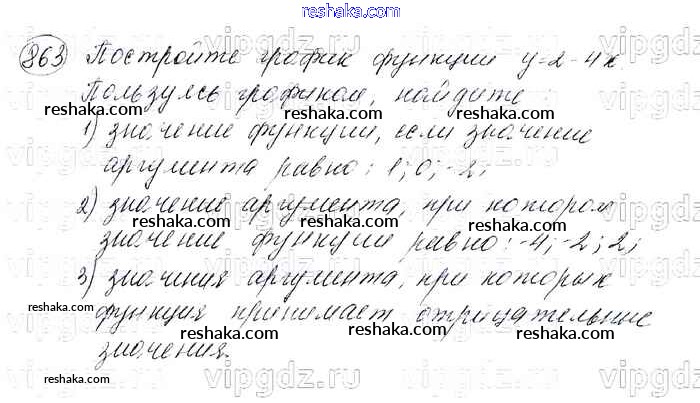 reshaka.com
863 Постройте график функции y=2-4x
Пользуясь графиком, найдите:
reshaka.com reshaka.com reshaka.com
1) значение функции, если значение
аргумента равно: 1; 0; -2;
reshaka.com reshaka.com reshaka.com
2) значение аргумента, при котором
reshaka.com reshaka.com reshaka.com
значение функции равно: -4; -2; 2;
3) значения аргумента, при которых
reshaka.com reshaka.com reshaka.com
функция принимает отрицательные
reshaka.com reshaka.com reshaka.com
значения.
reshaka.com
vipgdz.ru